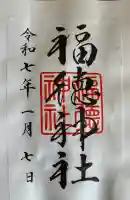 福徳神社
令和七年一月七日